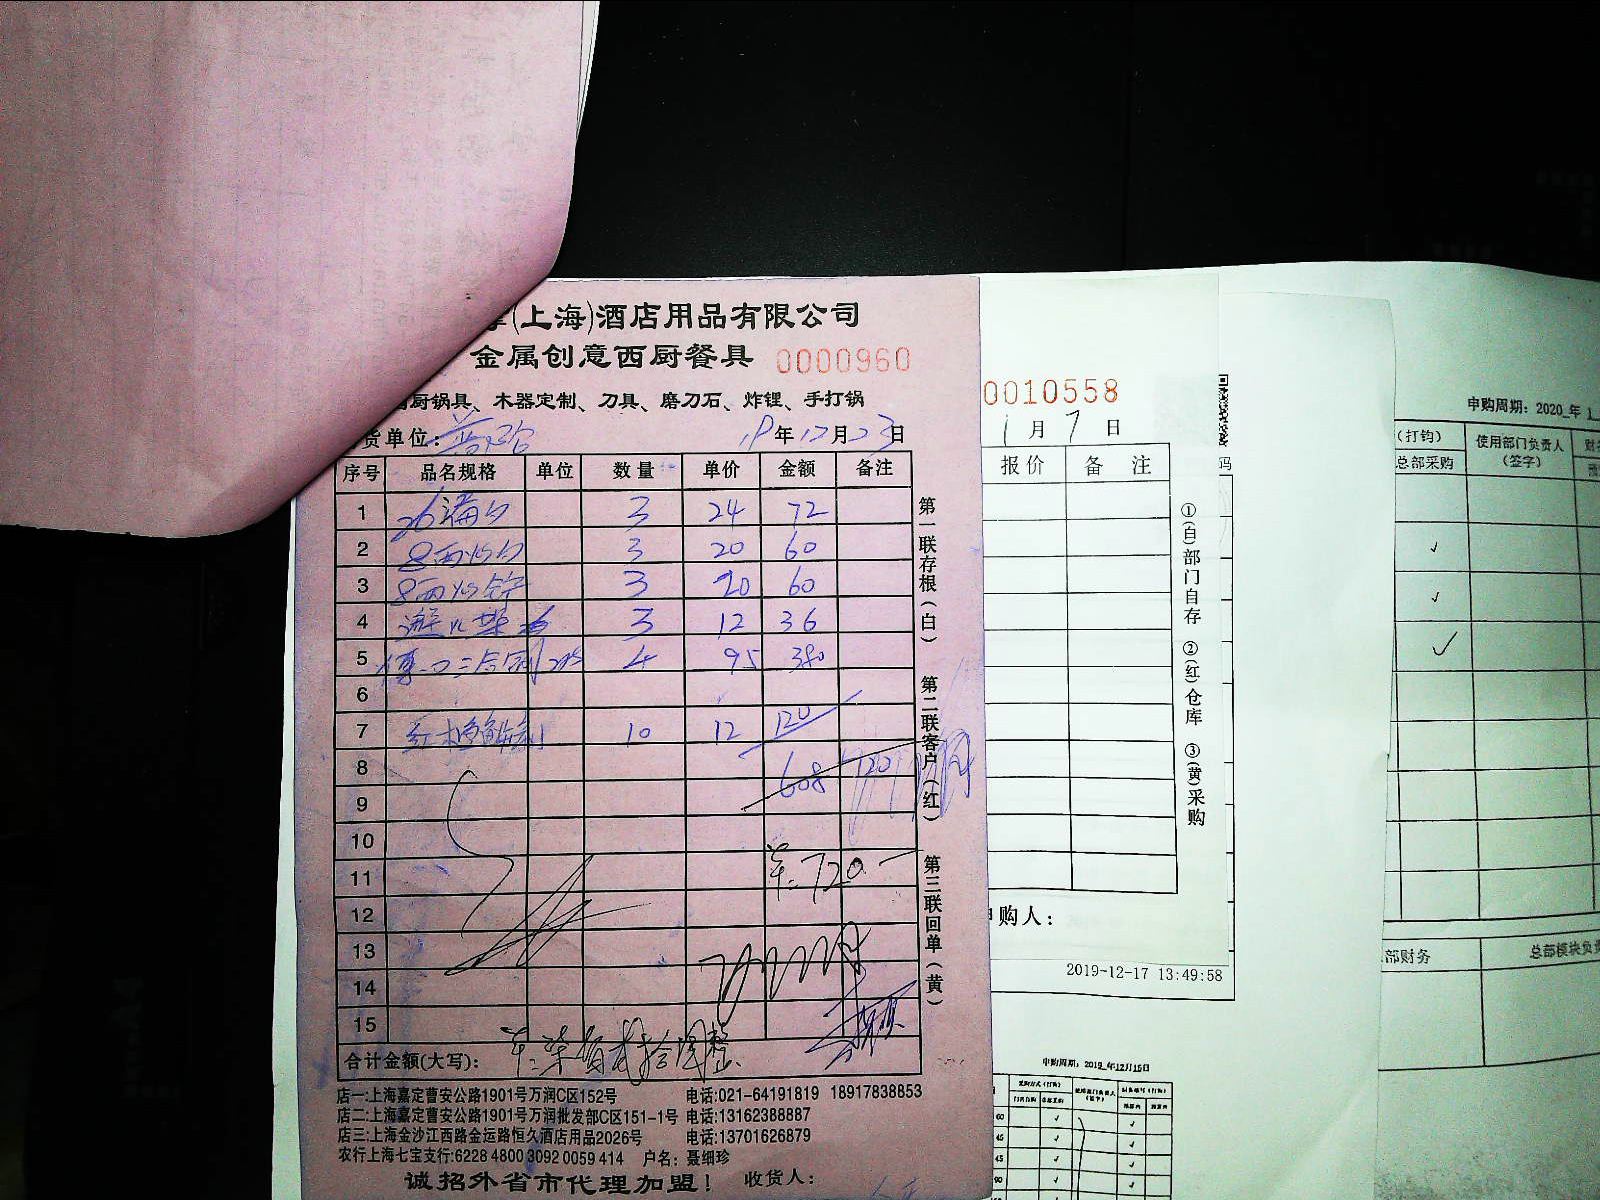 (上海)酒店用品有限公司
金属创意西厨餐具 0000960
厨锅具、木器定制、刀具、磨刀石、炸锂、手打锅
货单位: 19年12月23日
序号 品名规格 单位 数量 单价 金额 备注
1 26漏勺 3 24 72
2 8两炒勺 3 20 60
3 8两炒铲 3 20 60
4 3 12 36
5 4 95 380
6
7 10 12 120
8 608 720
9
10
11 720
12
13
14
15
合计金额(大写): 柒佰贰拾圆整
店一:上海嘉定曹安公路1901号万润C区152号 电话:021-64191819 18917838853
店二:上海嘉定曹安公路1901号万润批发部C区151-1号 电话:13162388887
店三:上海金沙江西路金运路恒久酒店用品2026号 电话:13701626879
农行上海七宝支行:6228 4800 3092 0059 414 户名:聂细珍
诚招外省市代理加盟! 收货人:
第一联存根(白) 第二联客户(红) 第三联回单(黄)
0010558
1月7日
报价 备 注
①(白)部门自存 ②(红)仓库 ③(黄)采购
购人:
码
2019-12-17 13:49:58
申购周期:2020 年 1
(打钩) 使用部门负责人(签字)
总部采购
部财务 总部模块负
申购周期:2019 年12月16日